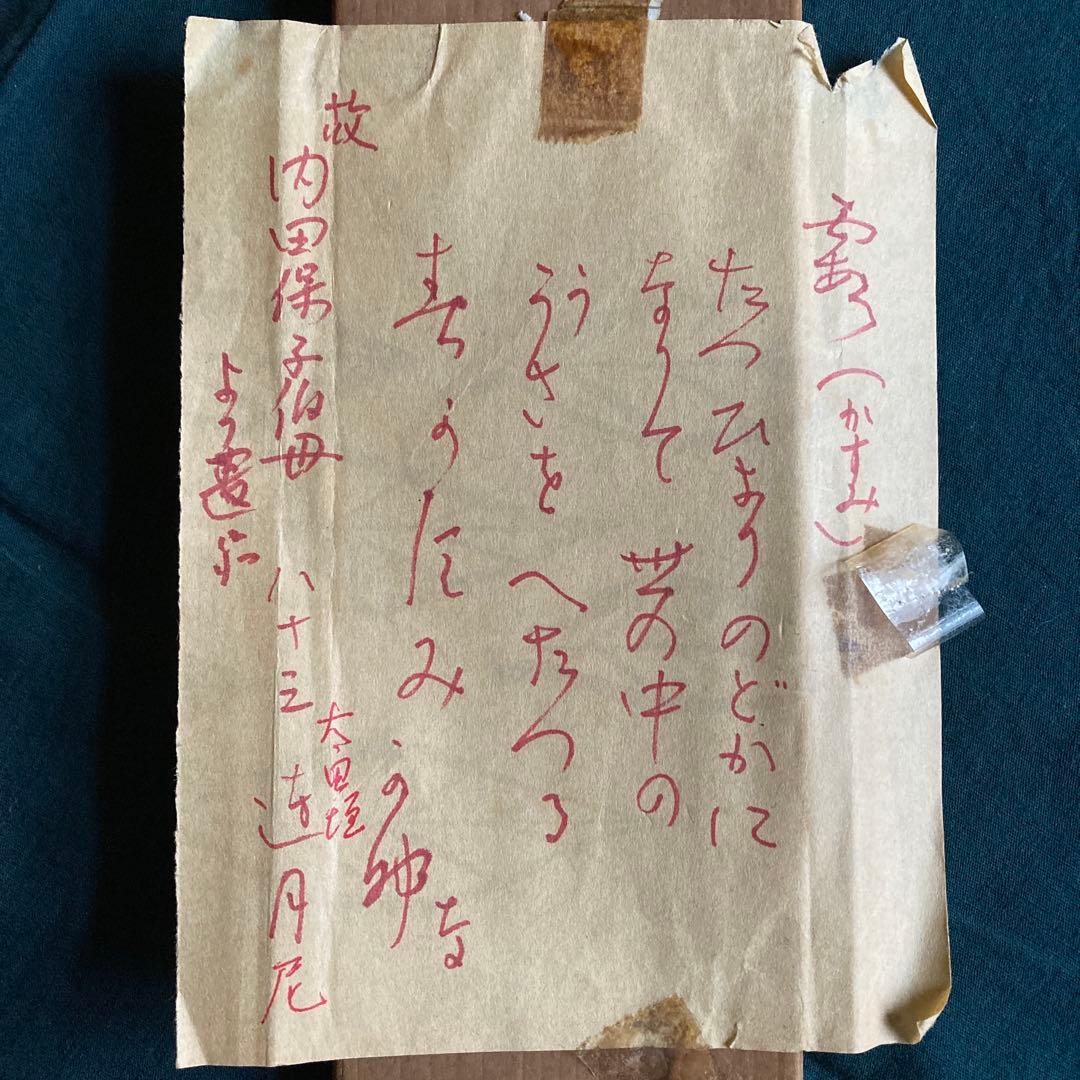 霞（かすみ）
たつひよりのどかに
なりて世の中の
うさをへたつる
う
春のうすみ
な
故内田保子伯母
より
八十三
大田垣
蓮月尼